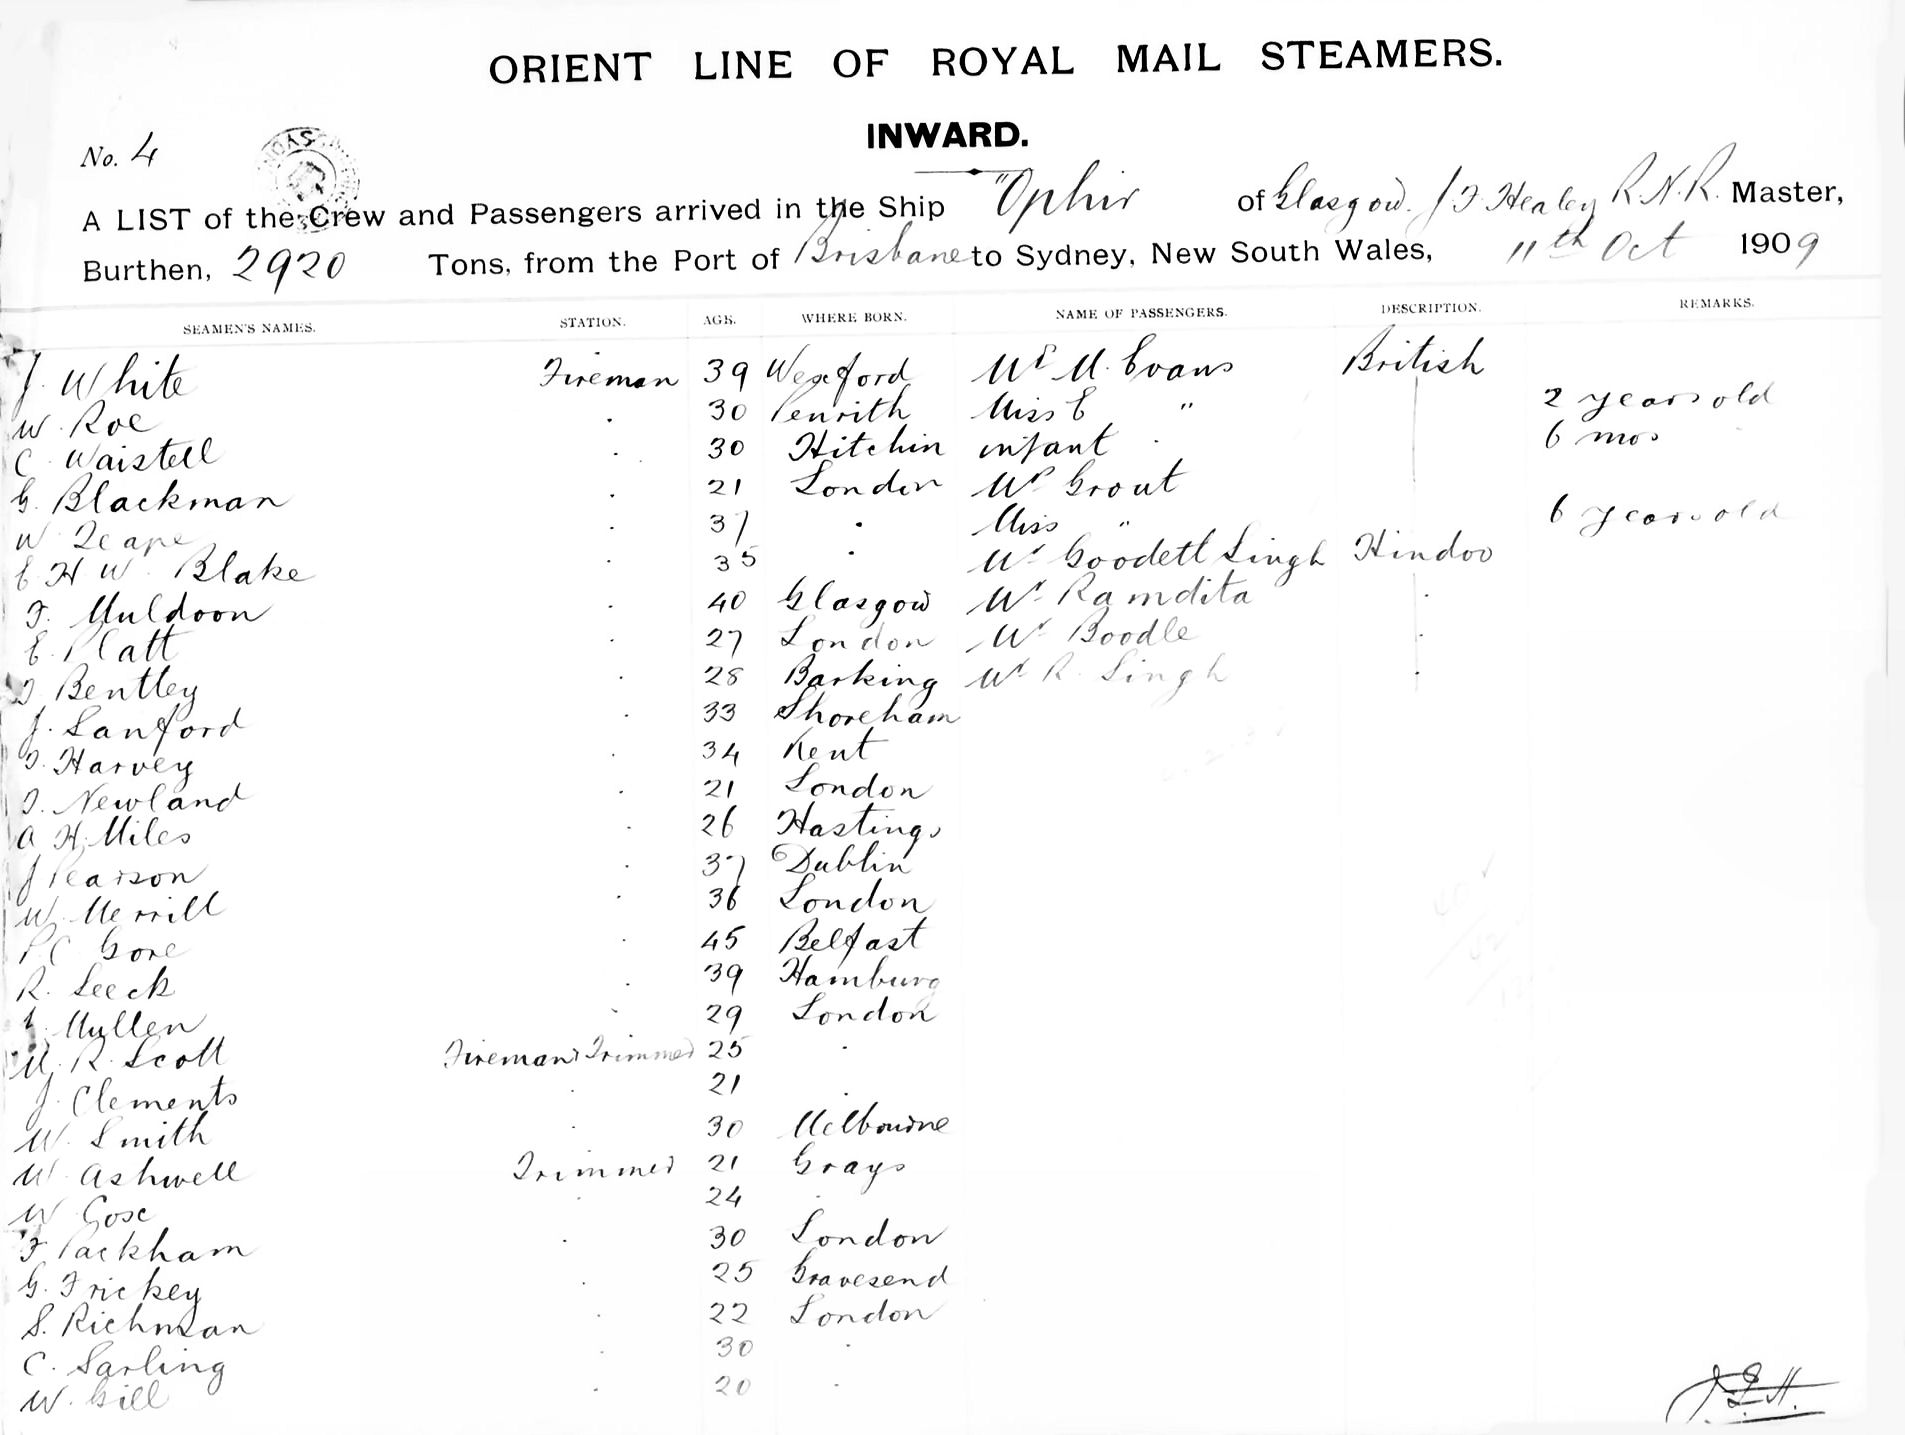 ORIENT LINE OF ROYAL MAIL STEAMERS.
INWARD.
No. 4
A LIST of the Crew and Passengers arrived in the Ship "Ophir of Glasgow. J F Healey R.N.R. Master,
Burthen, 2920 Tons, from the Port of Brisbane to Sydney, New South Wales, 11th Oct 1909
SEAMEN'S NAMES. STATION. AGE. WHERE BORN. NAME OF PASSENGERS. DESCRIPTION. REMARKS.
J. White Fireman 39 Wexford Mr M. Evans British
W. Roe . 30 Penrith Miss E " 2 years old
C. Waistell . 30 Hitchin infant . 6 mos
G. Blackman . 21 London Mr Grout
W . 37 . Miss " 6 years old
E H W. Blake . 35 . Mr Goodett Singh Hindoo
F. Muldoon . 40 Glasgow Mr Ramdita .
E. Platt . 27 London Mr Boodle .
J Bentley . 28 Barking Mr R. Singh .
J. Sanford . 33 Shoreham
J. Harvey . 34 Kent
J. Newland . 21 London
A H. Miles . 26 Hastings
J Pearson . 37 Dublin
W. Merrill . 36 London
P C Gore . 45 Belfast
R. Leeck . 39 Hamburg
Mullen . 29 London
M. R. Scott Fireman & Trimmer 25 .
J. Clements . 21 .
W. Smith . 30 Melbourne
W. Ashwell Trimmer 21 Grays
W Gose . 24 .
F. Packham . 30 London
G. Frickey . 25 Gravesend
S. Richman . 22 London
C. Sarling . 30 .
W. Gill . 20 .
J.F.H.